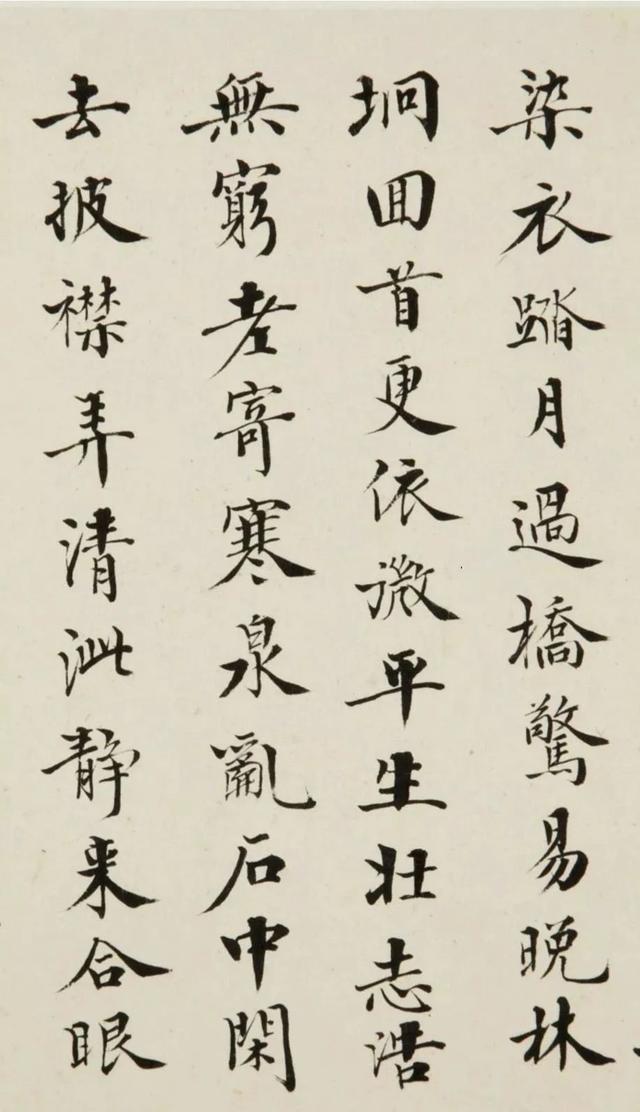 染衣踏月過橋驚易晚林
坰回首更依微平生壯志浩
無窮老寄寒泉亂石中閑
去披襟弄清泚静来合眼